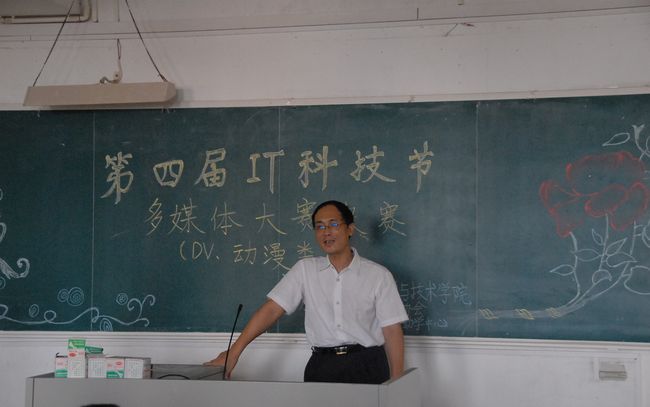 第四届IT科技节
多媒体大赛 赛
(DV、动漫类
与技术学院
中心